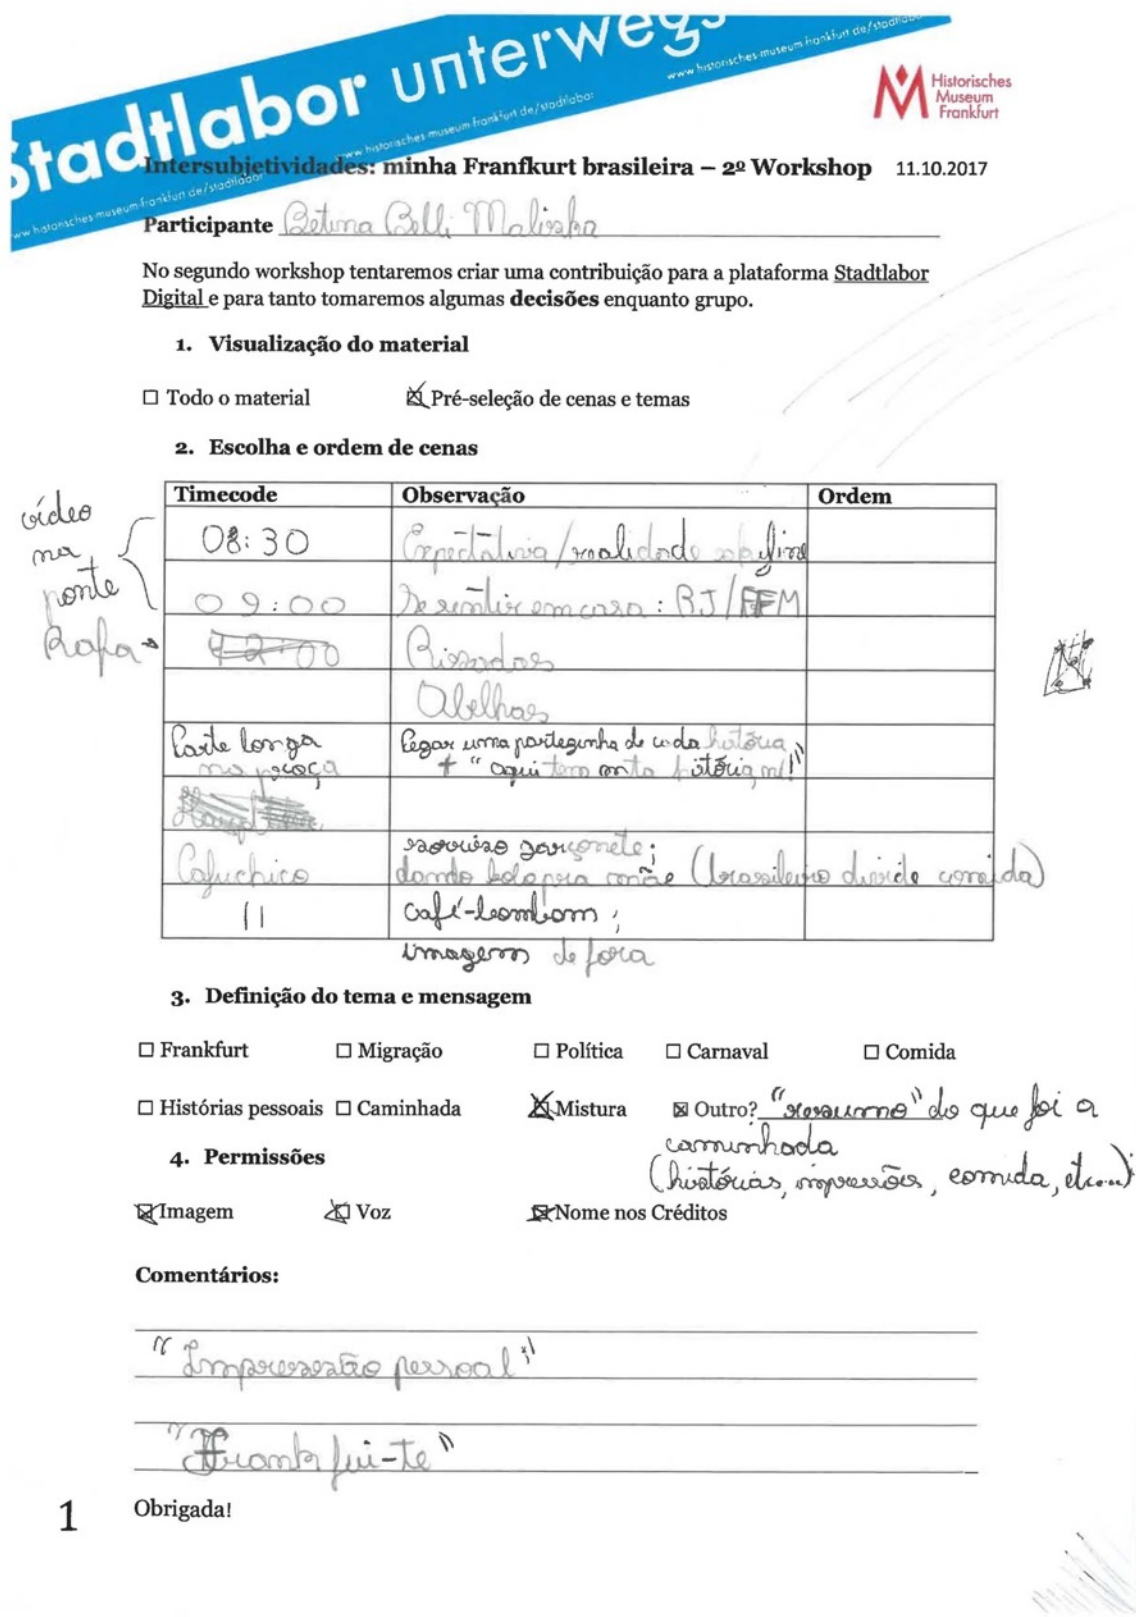 Stadtlabor unterwegs
www.historisches-museum-frankfurt.de/stadtlabor
Historisches
Museum
Frankfurt
Intersubjetividades: minha Franfkurt brasileira – 2º Workshop 11.10.2017
Participante Betina Belli
No segundo workshop tentaremos criar uma contribuição para a plataforma Stadtlabor
Digital e para tanto tomaremos algumas decisões enquanto grupo.
1. Visualização do material
☐ Todo o material ☒ Pré-seleção de cenas e temas
2. Escolha e ordem de cenas
Timecode Observação Ordem
vídeo
na
ponte
08:30 Expectativa/realidade skyline
09:00 Se sentir em casa: RJ/FFM
Rafa → 12:00 Risadas
Abelhas
Parte longa
na praça
Pegar uma partezinha de cada história
+ "aqui tem tanta história, n/!"
Cafuchico
sorriso garçonete;
dando bolo pra mãe (brasileiro divide comida)
11 café-bombom;
imagem de fora
3. Definição do tema e mensagem
☐ Frankfurt ☐ Migração ☐ Política ☐ Carnaval ☐ Comida
☐ Histórias pessoais ☐ Caminhada ☒ Mistura ☒ Outro? "resumo" do que foi a
caminhada
(histórias, impressões, comida, etc...)
4. Permissões
☒ Imagem ☒ Voz ☒ Nome nos Créditos
Comentários:
"Impressão pessoal"
"Frank fui-te"
1 Obrigada!